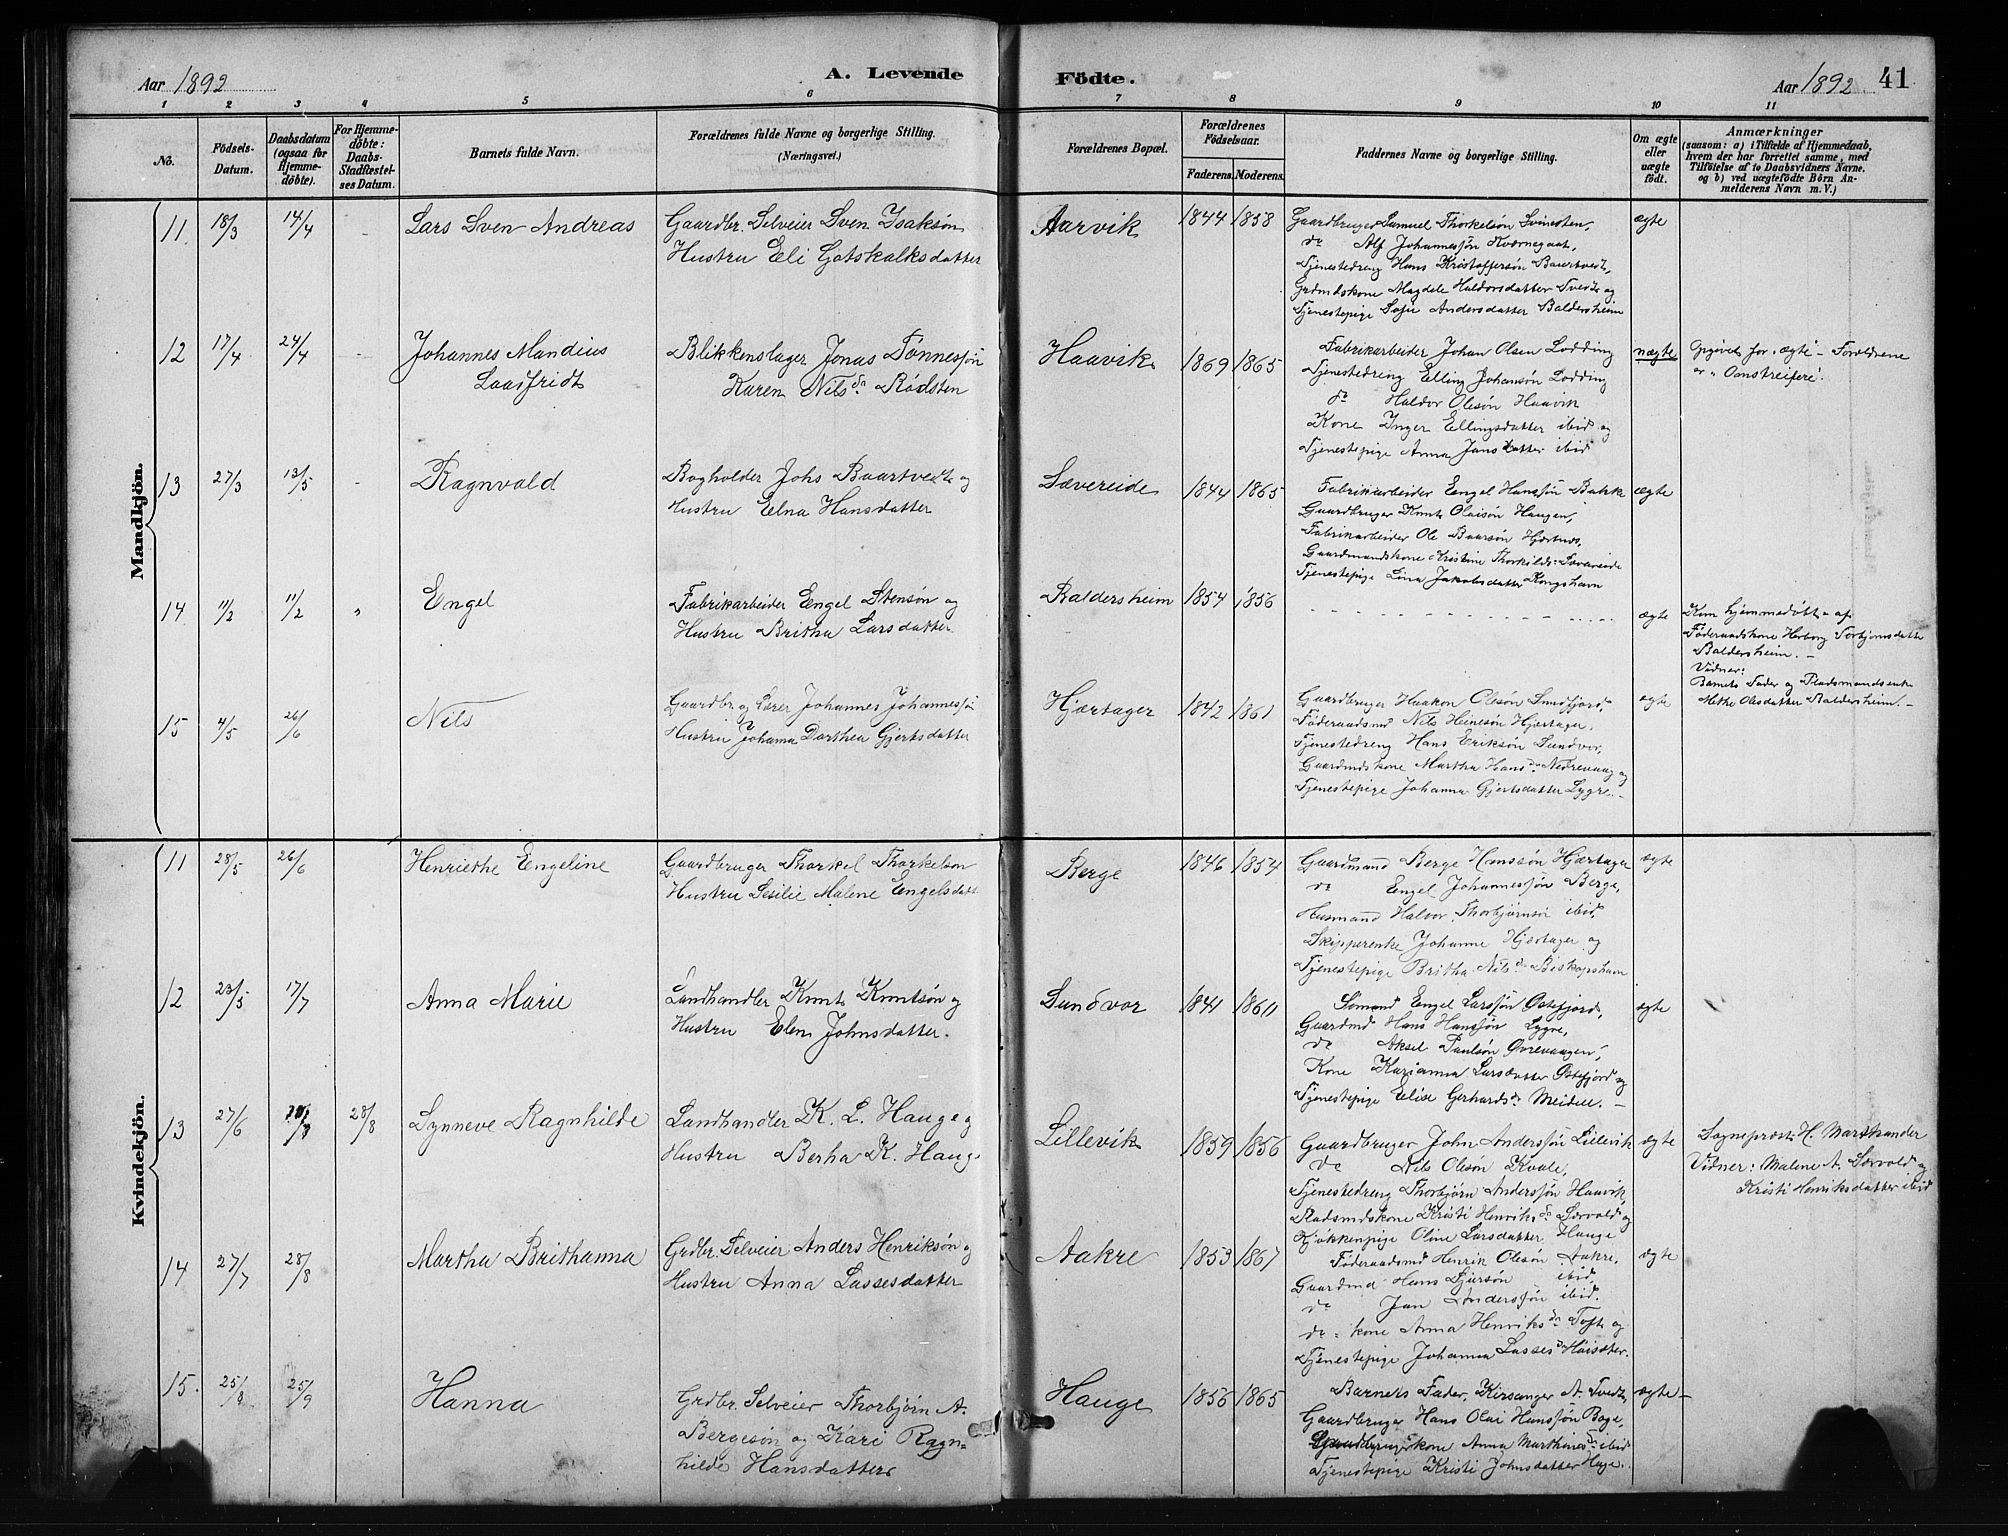 Aar 1892
A. Levende
Födte.
Aar 1892
41
1 2 3 4 5 6 7 8 9 10 11
No.
Födsels-
Datum.
Daabsdatum
(ogsaa for
Hjemme-
döbte).
For Hjemme-
döbte:
Daabs-
Stadfæstel-
ses Datum.
Barnets fulde Navn.
Forældrenes fulde Navne og borgerlige Stilling.
(Næringsvei.)
Forældrenes Bopæl.
Forældrenes
Födselsaar.
Faderens. Moderens.
Faddernes Navne og borgerlige Stilling.
Om ægte
eller
uægte
födt.
Anmærkninger
(saasom: a) i Tilfælde af Hjemmedaab,
hvem der har forrettet samme, med
Tilföielse af to Daabsvidners Navne,
og b) ved uægtefödte Börn An-
melderens Navn m. V.)
Mandkjön.
11 18/3 14/4 - Lars Sven Andreas
Gaardbr. Selveier Sven Isaksøn
Hustru Eli Gotskalksdatter
Aarvik 1844 1858
Gaardbruger Samuel Thorkelsön
do Alf Johannesjön
Tjenestedreng Hans Kristoffersön
Magdele Haldorsdatter Tvedt og
Tjenestepige Andersdatter Baldersheim
ægte
12 17/4 24/4 - Johannes Mandius
Blikkenslager Jonas Tönnessön
Karen Nilsda Rödsten
Haavik 1869 1865
Fabrikarbeider Johan Olsen Lodding
Tjenestedreng Elling Johansön Lodding
do Haldor Olesön Haavik
Kone Inger Ellingsdatter ibid og
Tjenestepige Anna Jansdatter ibid
uægte
Opgivet for "ægte" - Forældrene
er "Omstreifere".
13 27/3 13/5 - Ragnvald
Bogholder Johs Baartvedt og
Hustru Elna Hansdatter
Sævereide 1844 1865
Fabrikarbeider Engel Hanssön Bakk
Gaardbruger Knut Olaisön Haugen,
Fabrikarbeider Ole Baarsön Hjertnes,
Gaardmandskone Kristine Thorkilds: Sævereide
Tjenestepige Lina Jakobsdatter Kongshavn
ægte
14 11/2 11/2 " Engel
Fabrikarbeider Engel Stensön og
Hustru Britha Larsdatter
Baldersheim 1854 1856
ægte
Kun hjemmedöbt af
Föderaadskone Herborg Torbjornsdatter
Baldersheim. -
Vidner:
Barnets Fader og Pladsmandsenke
Methe Olesdatter Baldersheim. -
15 4/5 26/6 Nils
Gaardbr. og Lærer Johannes Johannessön
Hustru Johanna Dorthea Gjertsdatter
Hjærtager 1842 1861
Gaardbruger Haakon Olesön Sundfjord,
Föderaadsmd Nils Heinesön Hjærtager,
Tjenestedreng Hans Eriksön Sundvor,
Gaardmdskone Martha Hansda Nedrevaag og
Tjenestepige Johanna Gjertsdatter Lygre. -
ægte
Kvindekjön.
11 28/5 26/6 Henriethe Engeline
Gaardbruger Thorkel Thorkelson
Hustru Sesilie Malene Engelsdatt
Berge 1846 1854
Gaardmand Berge Hanssön Hjærtager
do Engel Johannessön Berge,
Husmand Halvor Thorbjörnsön ibid.
Skipperenke Johanne Hjærtager og
Tjenestepige Britha Nilsda Biskopshavn
ægte
12 23/5 17/7 Anna Marie
Landhandler Knut Knutsön og
Hustru Elen Johnsdatter.
Sundvor 1841 1860
Sömand Engel Larssön Østefjord,
Gaardmd Hans Hanssön Lygre,
do Aksel Paulsön Øvrevaagen,
Kone Marianna Larsdatter Østefjord og
Tjenestepige Elise Gerhardsda Meidell. -
ægte
13 27/6 28/8 Synneve Ragnhilde
Landhandler K. L. Hauge og
Hustru Berha K. Hauge
Lillevik 1859 1856
Gaardbruger John Anderssön Lillevik
do Nils Olesön Kvale,
Tjenestedreng Thorbjörn Anderssön Haavik,
Pladsmdskone Kristi Henriksda Særvold og
Kjökkenpige Oline Larsdatter Hauge
ægte
Sogneprest H. Marthander
Vidner: Malene A. Særvold og
Kristi Henriksdatter ibid
14 27/7 28/8 Martha Brithanna
Grdbr. Selveier Anders Henriksön og
Hustru Anna Lassesdatter
Aakre 1853 1867
Föderaadsmd Henrik Olesön Aakre,
Gaardmd Hans ibid
do Jan Anderssön ibid.
do - kone Anna Henriksda Tofte og
Tjenestepige Johanna Lassesd Höisæter.
ægte
15. 25/8 25/9 Hanna
Grdbr. Selveier Thorbjörn A.
Bergesön og Kari Ragn-
hilde Hansdatter
Hauge 1856 1865
Barnets Fader, Kirsanger A. Tvedt,
Gaardbruger Hans Olai Hanssön Boge,
kone Anna Marthinesda ibid
Tjenestepige Kristi Johnsdatter Hage.
ægte -